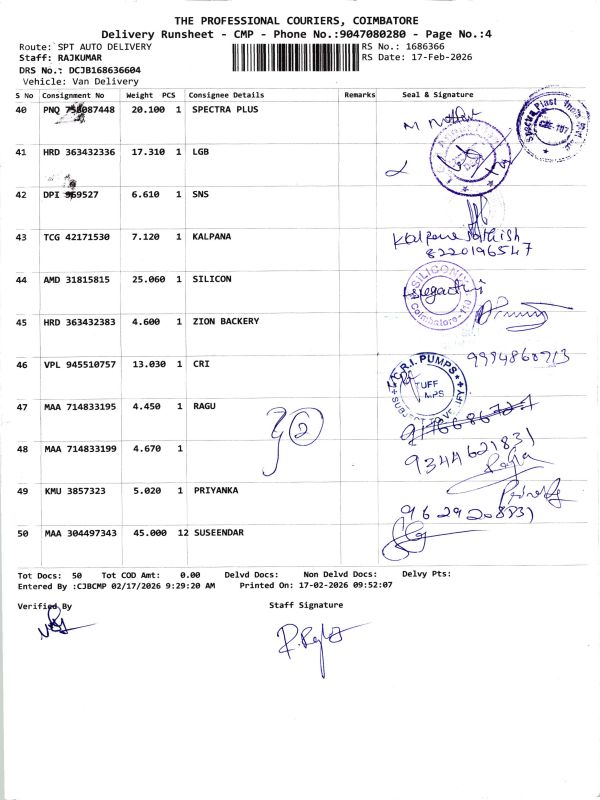 THE PROFESSIONAL COURIERS, COIMBATORE
Delivery Runsheet - CMP - Phone No.:9047080280 - Page No.:4
Route: SPT AUTO DELIVERY RS No.: 1686366
Staff: RAJKUMAR RS Date: 17-Feb-2026
DRS No.: DCJB168636604
Vehicle: Van Delivery
S No Consignment No Weight PCS Consignee Details Remarks Seal & Signature
40 PNQ 20.100 1 SPECTRA PLUS
41 HRD 363432336 17.310 1 LGB
42 DPI 6.610 1 SNS
43 TCG 42171530 7.120 1 KALPANA
Kalpana Sathish
8220196547
44 AMD 31815815 25.060 1 SILICON
SILICONIX
Coimbatore-110
45 HRD 363432383 4.600 1 ZION BACKERY
46 VPL 945510757 13.030 1 CRI
C.R.I. PUMPS
TUFF
47 MAA 714833195 4.450 1 RAGU
48 MAA 714833199 4.670 1
9344621831
49 KMU 3857323 5.020 1 PRIYANKA
50 MAA 304497343 45.000 12 SUSEENDAR
Tot Docs: 50 Tot COD Amt: 0.00 Delvd Docs: Non Delvd Docs: Delvy Pts:
Entered By :CJBCMP 02/17/2026 9:29:20 AM Printed On: 17-02-2026 09:52:07
Verified By Staff Signature